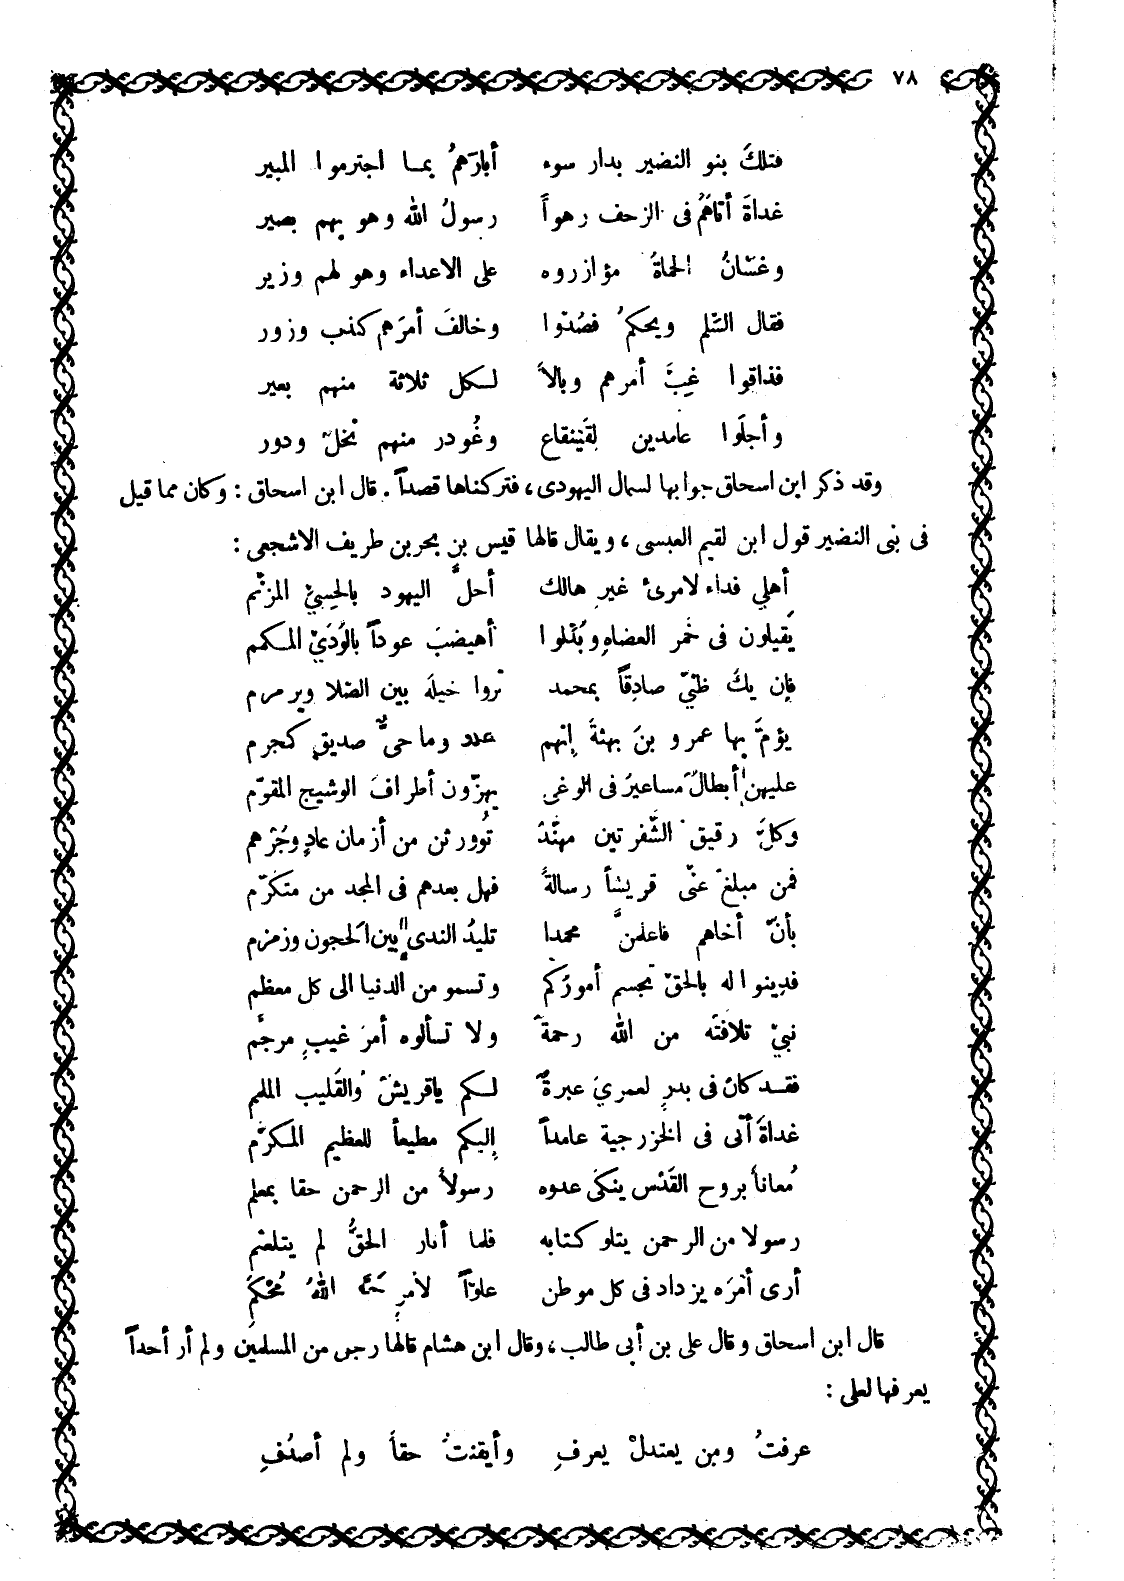 ٧٨
فتلكَ بنو النضير بدار سوء أبارَهمُ بما اجترموا المبير
غداةَ أتاهمُ فى الزحف رهواً رسولُ الله وهو بهم بصير
وغسّانُ الحماةُ مؤازروه على الاعداء وهو لهم وزير
فقال السّلم ويحكمُ فصُدّوا وخالفَ أمرَهم كذب وزور
فذاقوا غِبَّ أمرهم وبالاً لكل ثلاثة منهم بعير
وأجلَوا عامدين لِقَيْنقاع وغُودر منهم نخلٌ ودور
وقد ذكر ابن اسحاق جوابها لسمال اليهودى، فتركناها قصداً. قال ابن اسحاق: وكان مما قيل
فى بنى النضير قول ابن لقيم العبسى، ويقال قالها قيس بن بحر بن طريف الاشجعى:
أهلي فداء لامرئ غير هالك أحلَّ اليهود بالحِسِيِّ المزنّم
يَقيلون فى خَمر العضاه وبُدّلوا أهيضبَ عوداً بالوُدَيّ المكمم
فإن يكُ ظنّي صادقاً بمحمد تروا خيلَه بين الصّلا ويرمرم
يؤمّ بها عمرو بنَ بهثةَ إنهم عدد وما حىٌّ صديقٍ كمجرم
عليهن أبطالٌ مساعيرُ فى الوغى يهزّون أطرافَ الوشيج المقوّم
وكلَّ رقيق الشَّفرتين مهنَّد تُوورثن من أزمان عادٍ وجُرْهم
فمن مبلغٌ عنّى قريشاً رسالةً فهل بعدهم فى المجد من متكرّم
بأنّ أخاهم فاعلمنَّ محمدا تليدُ الندى بين الحجون وزمزم
فدينوا له بالحقّ تجسم أمورُكم وتسمو من الدنيا الى كل معظم
نبيّ تلاقتْه من الله رحمةٌ ولا تسألوه أمرَ غيبٍ مرجَّم
فقد كان فى بدرٍ لعمريَ عبرةٌ لكم ياقريشٌ والقَليب الملمم
غداةَ أتى فى الخزرجية عامداً إليكم مطيعاً للعظيم المكرّم
مُعاناً بروح القدْس ينكى عدوه رسولاً من الرحمن حقا بمعلم
رسولا من الرحمن يتلو كتابه فلما أنار الحقُّ لم يتلعثم
أرى أمْرَه يزداد فى كل موطن علوّاً لأمرٍ حَمَّه اللهُ مُحْكَمِ
قال ابن اسحاق وقال على بن أبى طالب، وقال ابن هشام قالها رجل من المسلمين ولم أر أحداً
يعرفها لعلى:
عرفتُ ومن يعتدلْ يعرفِ وأيقنتُ حقاً ولم أصدُفِ